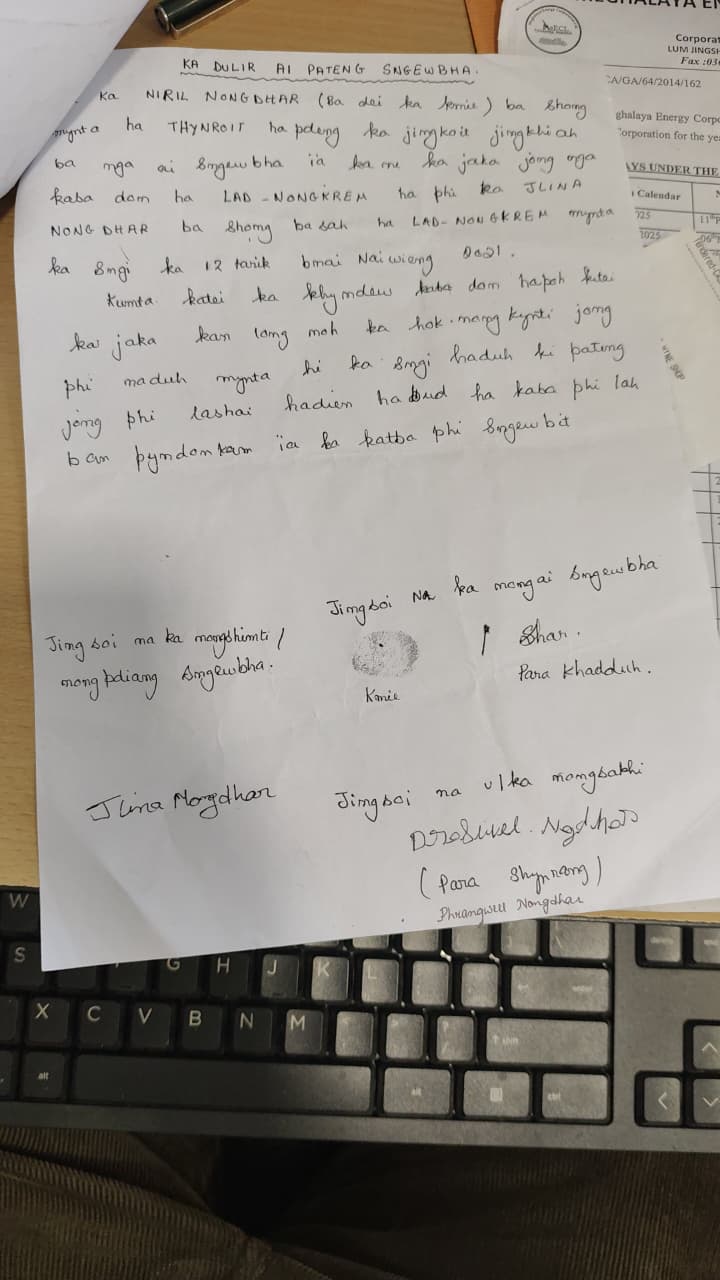 KA DULIR AI PATENG SNGEWBHA.
Ka NIRIL NONGDHAR (Ba dei ka kmie) ba shong
mynta ha THYNROIT ha pdeng ka jingkoit jingkhiah
ba nga ai sngewbha ia ka ne ka jaka jong nga
kaba don ha LAD-NONGKREM ha phi ka JLINA
NONGDHAR ba shong ba sah ha LAD-NONGKREM mynta
ka sngi ka 12 tarik bnai Naiwieng 2021.
Kumta katei ka khyndew kaba don hapoh katei
ka jaka kan long noh ka hok mang kynti jong
phi naduh mynta hi ka sngi haduh ki pateng
jong phi lashai hadien habud ha kaba phi lah
ban pyndonkam ïa ka katba phi sngewbit
Jingsoi na ka nongai sngewbha
Jingsoi na ka nongshimti /
nongpdiang sngewbha.
Kmie
Shar.
Para Khadduh.
Jlina Nongdhar
Jingsoi na u/ka nongsakhi
(Para Shynrang)
Phrangwell Nongdhar
MeECL
GHALAYA EN
Corporat
LUM JINGSH
Fax :036
CA/GA/64/2014/162
ghalaya Energy Corpo
Corporation for the ye
AYS UNDER THE
Calendar
025
11th
2025
06th
Tendered
WINE SHOP
W
S
G
H
J
K
L
X
C
V
B
N
M
alt
alt
ctrl